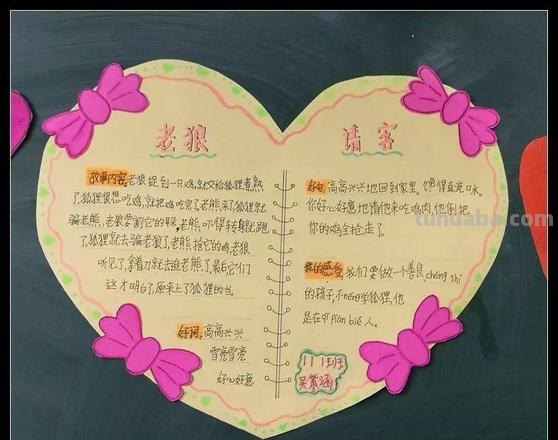 老狼
请客
故事内容:老狼捉到一只鸡,就交给狐狸煮熟
了,狐狸很想吃鸡,就把鸡吃完了老熊来了,狐狸就
骗老熊,老狼要割它的耳朵,老熊吓得转身就跑
了,狐狸就去骗老狼了,老熊抢它的鸡,老狼
听见了,拿着刀就去追老熊了,最后它们
这才明白了,原来上了狐狸的当。
好词:高高兴兴
雪亮雪亮
好心好意
好句:高高兴兴地回到家里。馋得直流口水。
你好心好意地请他来吃鸡肉,他倒把
你的鸡全抢走了。
我的感受:我们要做一个善良、chéng shí
的孩子,不néng学狐狸,他
是在piàn bié人。
吴紫涵
tuhuaba.com